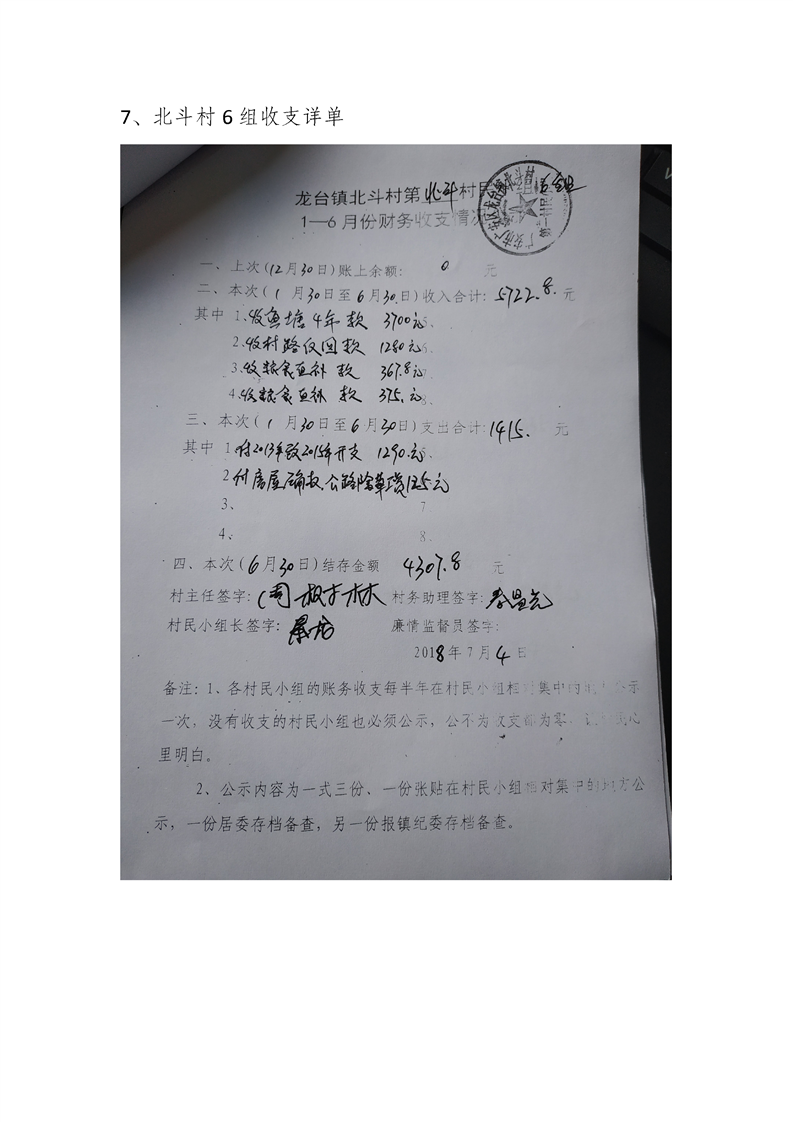 7、北斗村 6 组收支详单
龙台镇北斗村第北斗村民 6组
1—6月份财务收支情况
广安市广安区龙台镇北斗村
第一村民
一、上次(12月30日)账上余额: 0 元
二、本次( 1 月30日至 6 月30日)收入合计: 5722.8. 元
其中 1、收鱼塘4年 款 3700元5、
2、收村路仅回款 1280元6、
3、收粮食直补 款 367.8元7
4、收粮食直补 款 375.元8、
三、本次( 1 月30日至 6 月30日)支出合计: 1415. 元
其中 1付2013年致2015年开支 1290.元5、
2付房屋确权.公路除草费125元
3、 7
4、 8.
四、本次( 6 月30日)结存金额 4307.8 元
村主任签字: 树林 村务助理签字:
村民小组长签字: 廉情监督员签字:
2018年7月4日
备注: 1、各村民小组的账务收支每半年在村民小组相对集中的地方公示
一次, 没有收支的村民小组也必须公示, 公不为收支都为零, 让 民心
里明白。
2、公示内容为一式三份、一份张贴在村民小组相对集中的地方公
示, 一份居委存档备查, 另一份报镇纪委存档备查。